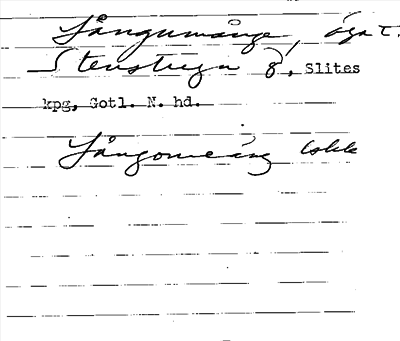 Långumånge, ägat.
Stenstugu 8, Slites
kpg, Gotl. N. hd.
Långome͡ing